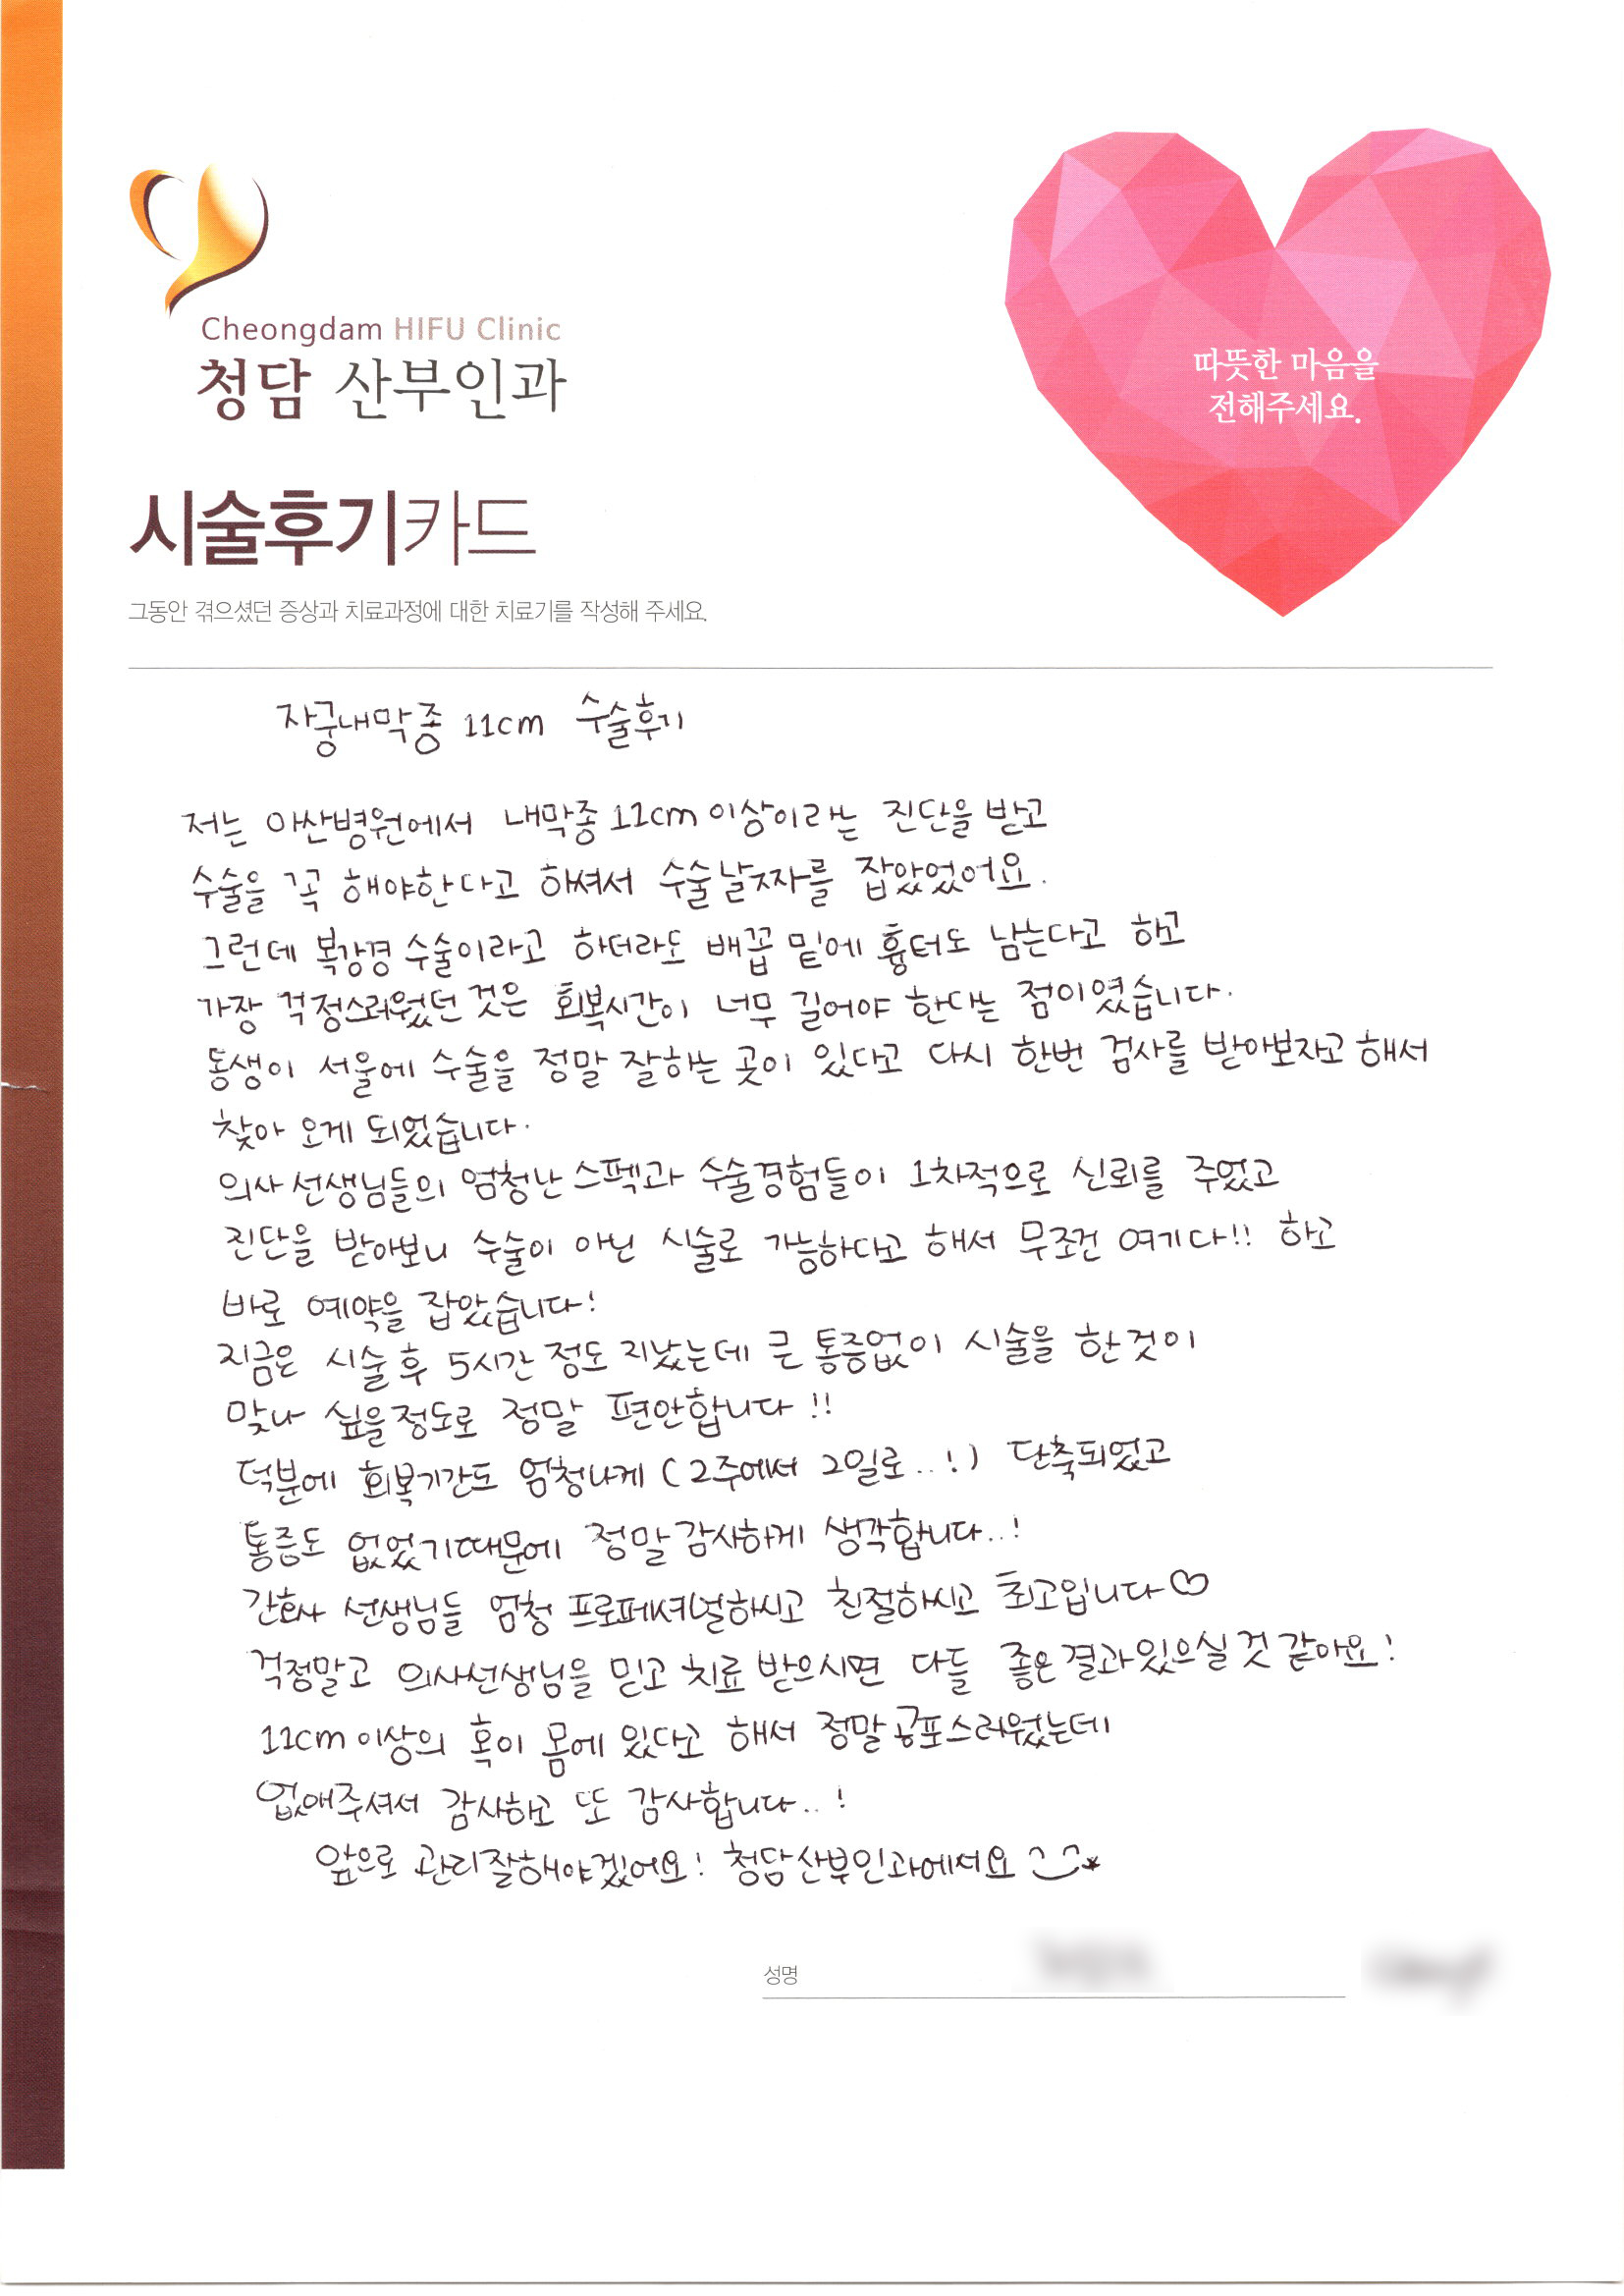 Cheongdam HIFU Clinic
청담 산부인과
따뜻한 마음을
전해주세요.
시술후기카드
그동안 겪으셨던 증상과 치료과정에 대한 치료기를 작성해 주세요.
자궁내막종 11cm 수술후기
저는 아산병원에서 내막종 11cm 이상이라는 진단을 받고
수술을 꼭 해야한다고 하셔서 수술날짜를 잡았었어요.
그런데 복강경 수술이라고 하더라도 배꼽 밑에 흉터도 남는다고 하고
가장 걱정스러웠던 것은 회복시간이 너무 길어야 한다는 점이였습니다.
동생이 서울에 수술을 정말 잘하는 곳이 있다고 다시 한번 검사를 받아보자고 해서
찾아 오게 되었습니다.
의사선생님들의 엄청난 스펙과 수술경험들이 1차적으로 신뢰를 주었고
진단을 받아보니 수술이 아닌 시술로 가능하다고 해서 무조건 여기다!! 하고
바로 예약을 잡았습니다!
지금은 시술 후 5시간 정도 지났는데 큰 통증없이 시술을 한것이
맞나 싶을정도로 정말 편안합니다!!
덕분에 회복기간도 엄청나게 (2주에서 2일로..!) 단축되었고
통증도 없었기때문에 정말 감사하게 생각합니다..!
간호사 선생님들 엄청 프로페셔널하시고 친절하시고 최고입니다♡
걱정말고 의사선생님을 믿고 치료 받으시면 다들 좋은결과있으실 것 같아요!
11cm 이상의 혹이 몸에 있다고 해서 정말 공포스러웠는데
없애주셔서 감사하고 또 감사합니다..!
앞으로 관리잘해야겠어요! 청담산부인과에서요
성명